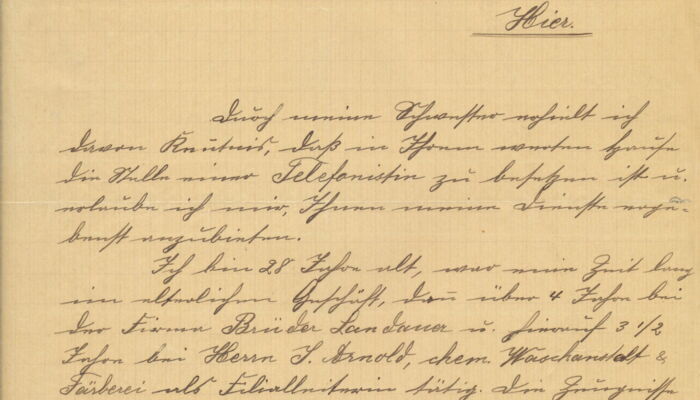 Hier.
Durch meine Schwester erhielt ich
davon Kenntnis, daß in Ihrem werten Hause
die Stelle einer Telefonistin zu besetzen ist u.
erlaube ich mir, Ihnen meine Dienste erge-
benst anzubieten.
Ich bin 28 Jahre alt, war eine Zeit lang
im elterlichen Geschäft, dan̄ über 4 Jahre bei
der Firma Brüder Landauer u. hierauf 3 1/2
Jahre bei Herrn J. Arnold, chem. Waschanstalt &
Färberei als Filialleiterin tätig. Die Zeugnisse